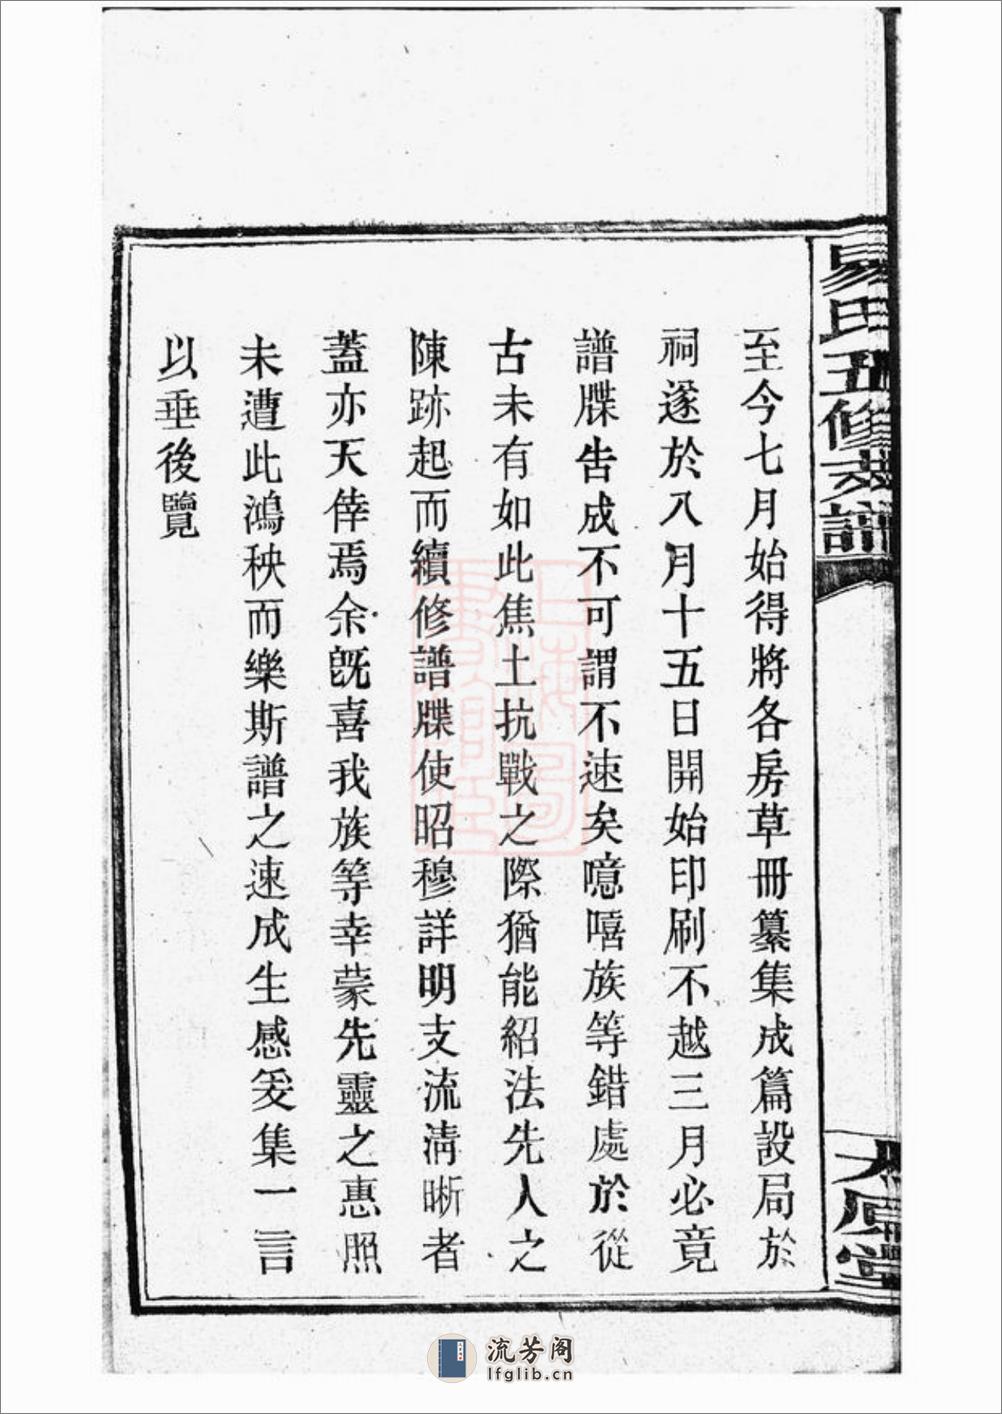 易氏五修支譜
太原堂
至今七月始得將各房草冊纂集成篇設局於
祠遂於八月十五日開始印刷不越三月必竟
譜牒告成不可謂不速矣噫嘻族等錯處於從
古未有如此焦土抗戰之際猶能紹法先人之
陳跡起而續修譜牒使昭穆詳明支流清晰者
蓋亦天倖焉余既喜我族等幸蒙先靈之惠照
未遭此鴻秧而樂斯譜之速成生感爰集一言
以垂後覽
流芳阁
lfglib.cn